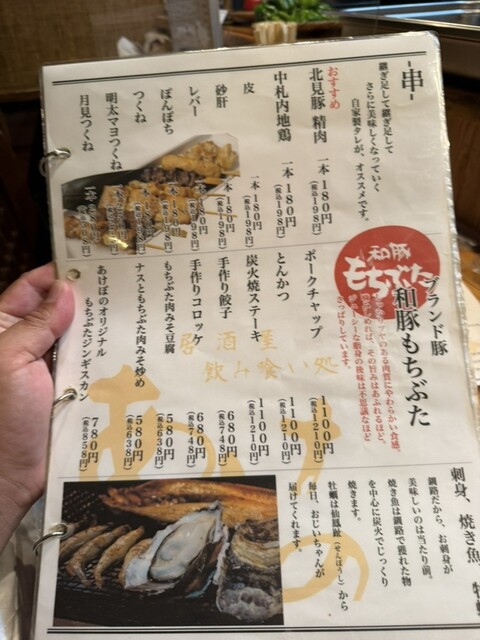 -串-
継ぎ足して継ぎ足して
さらに美味しくなっていく
自家製タレが、オススメです。
おすすめ
北見豚 精肉 一本 180円
(税込198円)
中札内地鶏 一本 180円
(税込198円)
皮 一本 180円
(税込198円)
砂肝 一本 180円
(税込198円)
レバー 一本 180円
(税込198円)
ぼんぼち
つくね
明太マヨつくね
月見つくね
和豚
もちぶた
ブランド豚
和豚もちぶた
のある肉質にやわらかい食感。
その旨みはあふれるほど
ジューシーな脂身の後味は不思議なほど
さっぱりしています。
ポークチャップ 1100円
(税込1210円)
とんかつ 1100円
(税込1210円)
炭火焼ステーキ 1100円
(税込1210円)
手作り餃子 680円
(税込748円)
手作りコロッケ 680円
(税込748円)
もちぶた肉みそ豆腐 580円
(税込638円)
ナスともちぶた肉みそ炒め 580円
(税込638円)
あけぼのオリジナル
もちぶたジンギスカン 780円
(税込858円)
居酒屋
飲み喰い処
刺身、焼き魚、牡蠣
釧路だから、お刺身が
美味しいのは当たり前。
焼き魚は釧路で獲れた物
を中心に炭火でじっくり
焼きます。
牡蠣は仙鳳趾(せんぽうし)から
毎日、おじいちゃんが
届けてくれます。